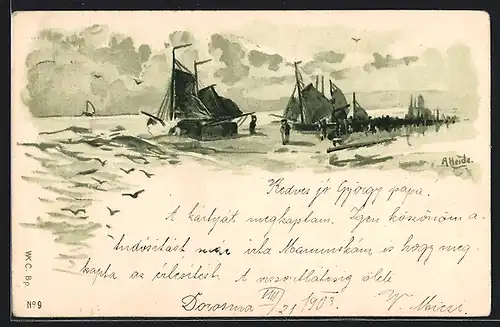 A. Heide.
Kedves jó György papa.
A kártyát megkaptam. Igen köszönöm a
tudósítást már írta Mamuskám is hogy meg-
kapta az értesítést. A viszontlátásig ölele
Dorozsma VIII/21 1903. W. Miczi
W.K.C. B.p.
No 9